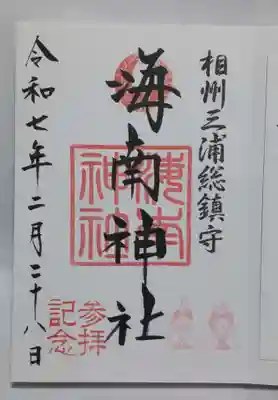 相州三浦総鎮守
海南神社
海南
神社
参拝
記念
令和七年二月二十八日